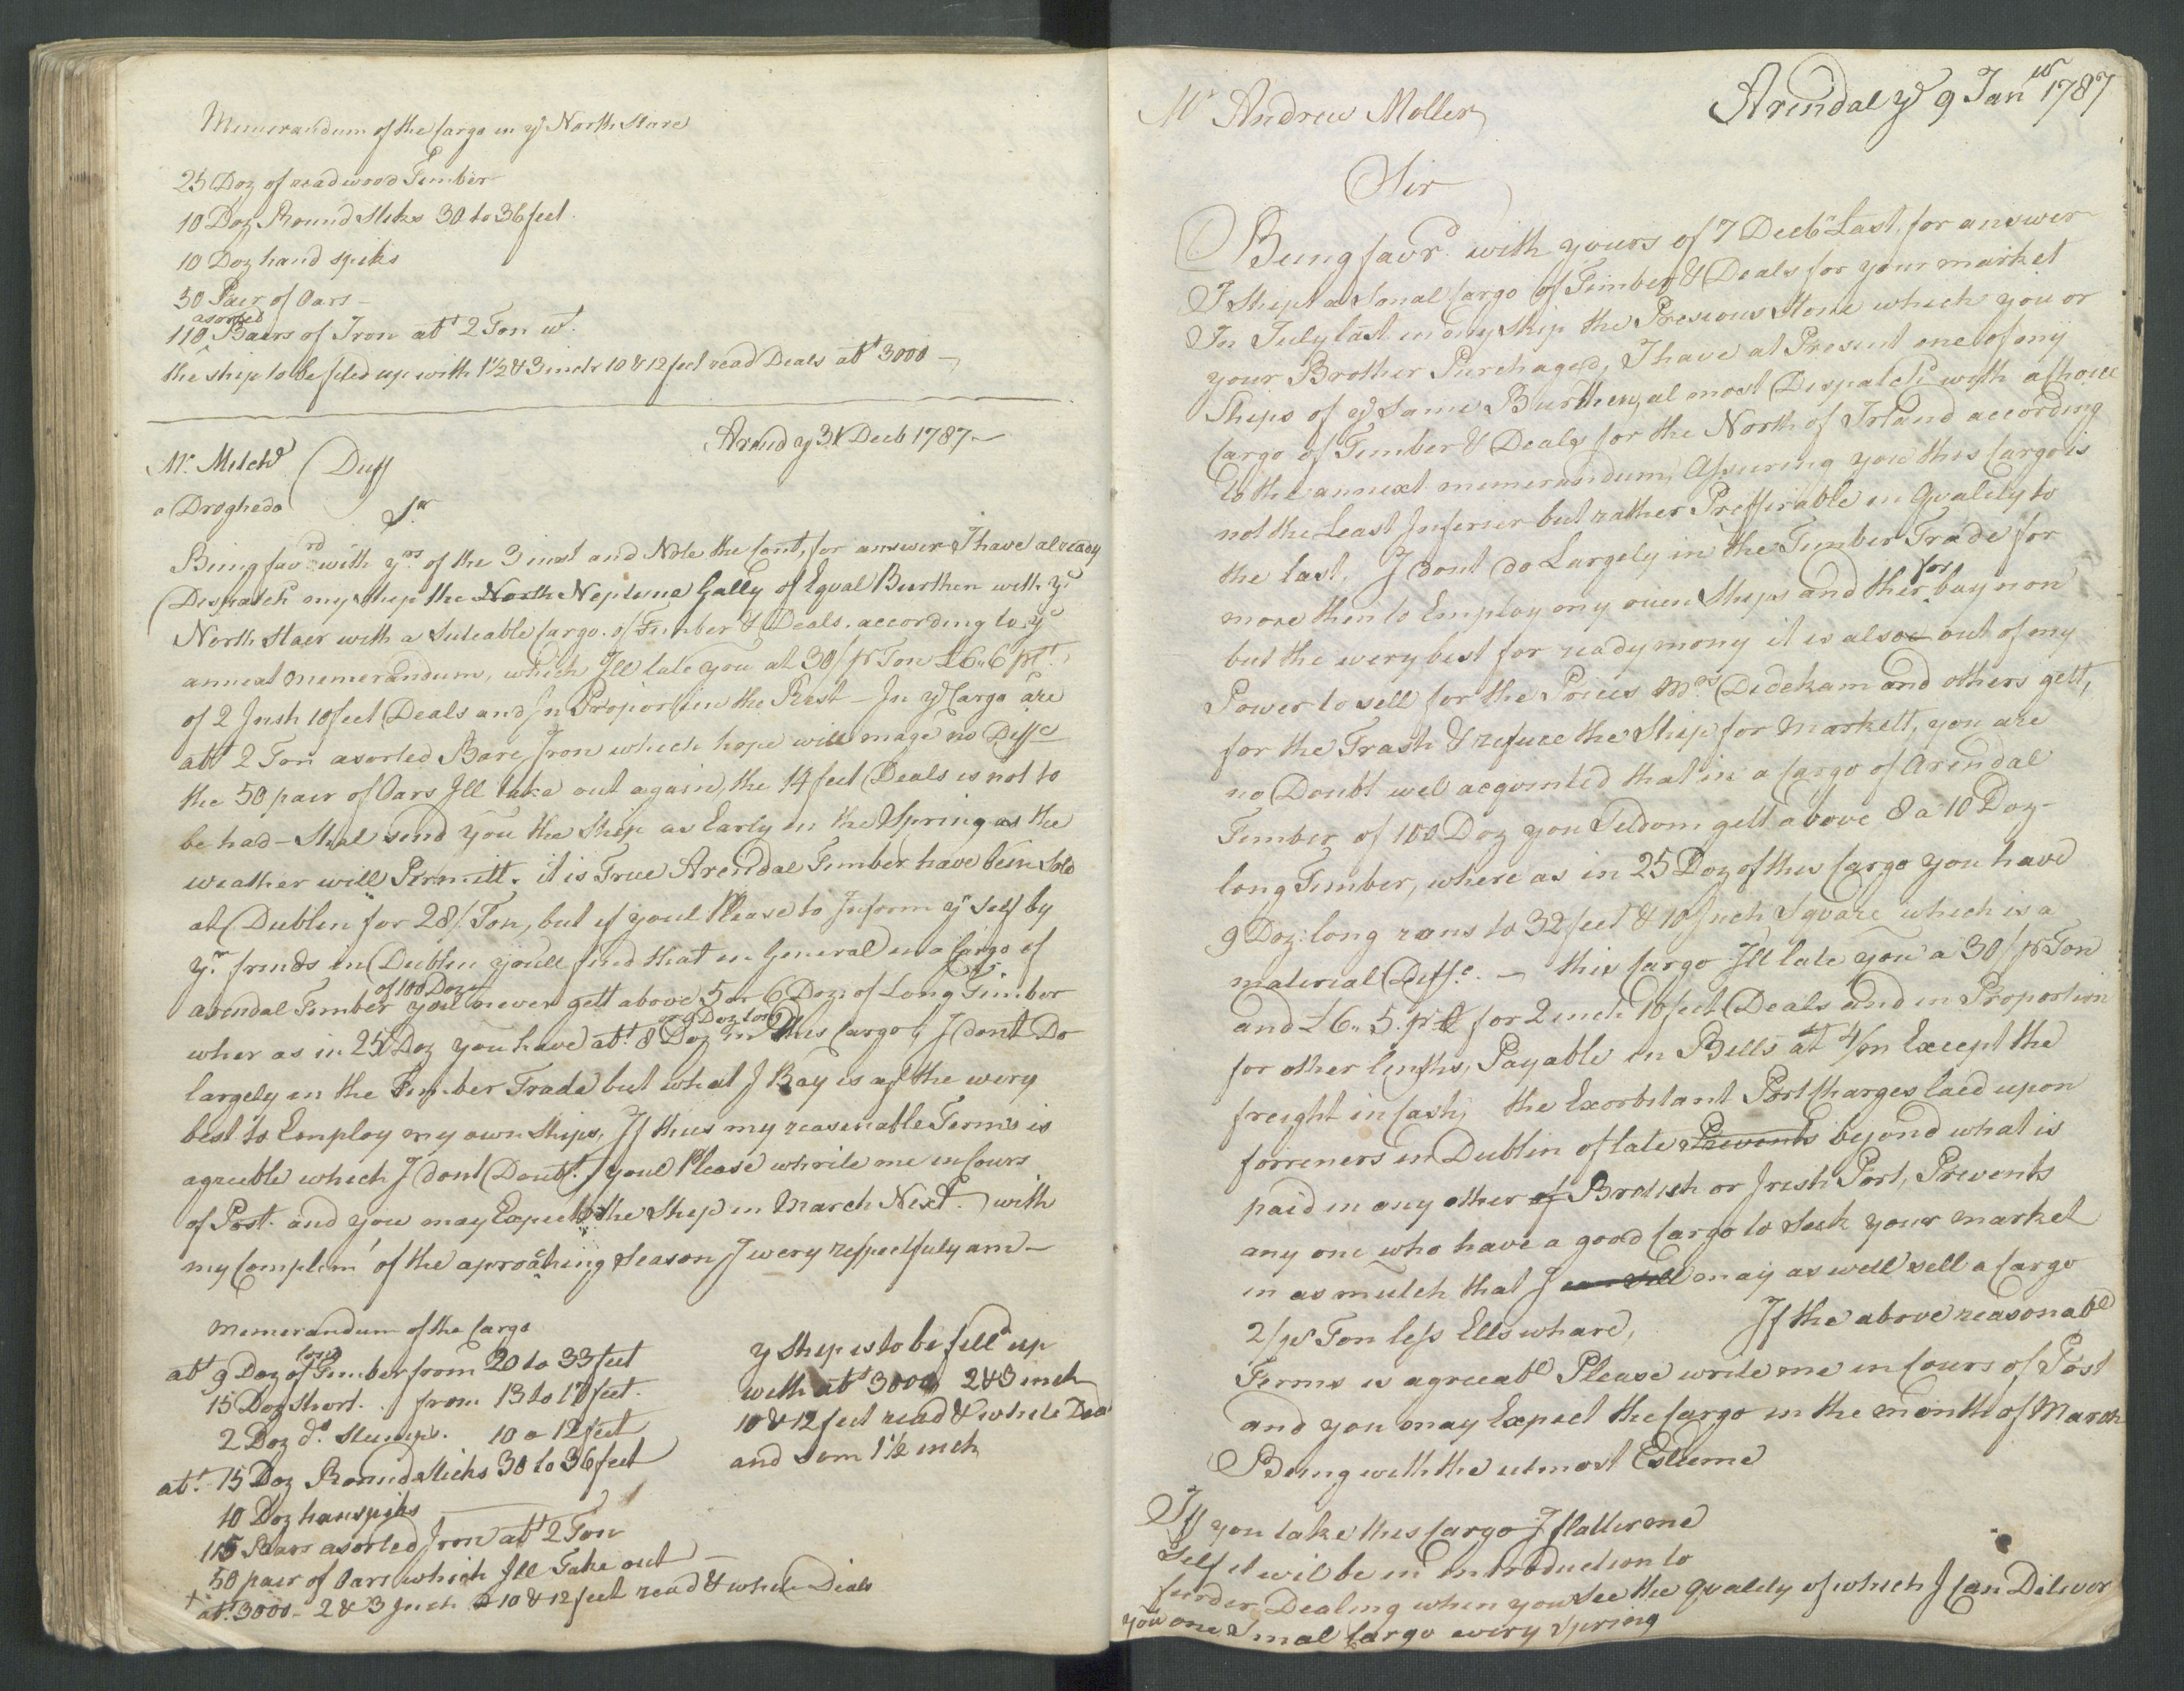 Memorandum of the Cargo in yᵉ North Stare
25 Doz of readwood Timber
10 Doz Round Stiks 30 to 36 feet
10 Doz hand spiks
50 Paer of Oars –
asorted
110 Baers of Iron abᵗ 2 Ton wᵗ
the ship to be filed up with 1½ & 3 inch 10 & 12 feet read Deals abᵗ 3000 –
Arend y 31 Decb 1787 –
Mʳ. Melchᵈ Duff
a Drogheda
Sʳ
Being favʳᵈ with yʳˢ of the 3 inst and Note the Cont, for answer I have already
Dispatchᵈ my ship the North Neptune Gally of Eqval Burthen with yᵉ
North Staer with a Suteable Cargo of Timber & Deals according to yᵉ
annext Memerandum, which Ill late you at 30/ pʳ Ton £6„6 pʳ
of 2 Insh 10 feet Deals and In Proportion the Rest – In yᵉ Cargo are
abᵗ 2 Ton asorted Bare Iron which hope will mage no Diffᶜᵉ
the 50 pair of Oars Ill take out again, the 14 feet Deals is not to
be had – Shal send you the Ship as Early in the Spring as the
weather will Permitt. it is True Arendal Timber have been Sold
at Dublin for 28/ Ton, but if youl Please to Inform yʳ self by
yʳ frinds in Dublin youll find that in General in a Cargo of
of 100 Doz
arendal Timber you never gett above 5 or 6 Doz: of Long Timber
or 9 Doz long
wher as in 25 Doz you have abᵗ 8 Doz in this Cargo, I dont Do
largely in the Timber Trade but what I Bay is of the wery
best to Employ my own Ships, If thies my reasenable Terms is
agreeble which I dont Doubt. youl Please whrite me in Cours
of Post. and you may Expect the Ship in March Next. with
my Complemᵗ of the aproaching Season I wery respectfuly am –
Memorandum of the Cargo
long
abᵗ 9 Doz of Timber from 20 to 33 feet
15 Doz Short. . from 13 to 17 feet.
2 Doz dᵒ. Stumps. 10 a 12 feet
abᵗ. 15 Doz Round Sticks 30 to 36 feet
10 Doz hanspiks
115 Baars asorted Iron abᵗ 2 Ton
50 pair of Oars which Ill Take out –
abᵗ. 3000 – 2 & 3 Insh a 10 & 12 feet read & white Deals
y Ship is to be fillᵈ up
with abᵗ 3000 2 & 3 inch
10 & 12 feet read & white Deal
and som 1½ inch
Arendal yᵉ 9 Janʷ 1787
Mʳ Andrew Moller
Sir
Being favʳᵈ with yours of 7 Decbʳ Last, for answer
I Shipt a Smal Cargo of Timber & Deals for your market
In July last in my Ship the Presious Stone which you or
your Brother Purchaged, I have at Present one of my
Ships of yᵉ Same Burthen, al most Dispatchᵈ with a Choice
Cargo of Timber & Deals for the North of Irland according
to the annext memerandum, Assuring you this Cargo is
not the Least Inferier but rather Prefferable in Qvalety to
the last. I dont do Largely in the Timber Trade for
more then to Employ my owen Ships and ther for bay non
but the wery best for ready mony it is also out of my
Power to sell for the Prices Mʳˢ Dedekam and others gett,
for the Trash & refuce the Ship for Markett, you are
no Doubt wel acqvinted that in a Cargo of Arendal
Timber of 100 Doz you Seldom gett above 8 a 10 Doz –
long Timber, where as in 25 Doz of this Cargo you have
9 Doz: long rans to 32 feet & 10 Inch Sqvare which is a
material Diffᶜᵉ. – this Cargo Ill late you a 30/ pʳ Ton
and £6„5. pʳ C for 2 inch 10 feet Deals and in Proportion
for other lengths, Payable in Bills at 4/m Except the
freight in Cash, the Exorbitant Port Charges laed upon
forreners in Dublin of late Prevents beyond what is
paid in any other of Brotish or Irish Port, Prevents
any one who have a good Cargo to Seek your market
in as mutch that I can sell may as well sell a Cargo
2/ pʳ Ton less Ells whare, If the above reasonabˡᵉ
Terms is agreeabˡᵉ Please write me in Cours of Post
and you may Expect the Cargo in the month of March
Being with the utmost Esteeme
If you take this Cargo I flatter me
Self it wil be in introduction to
furder Dealing when you See the qvalety of which I Can Deliver
you one Smal Cargo every Spring